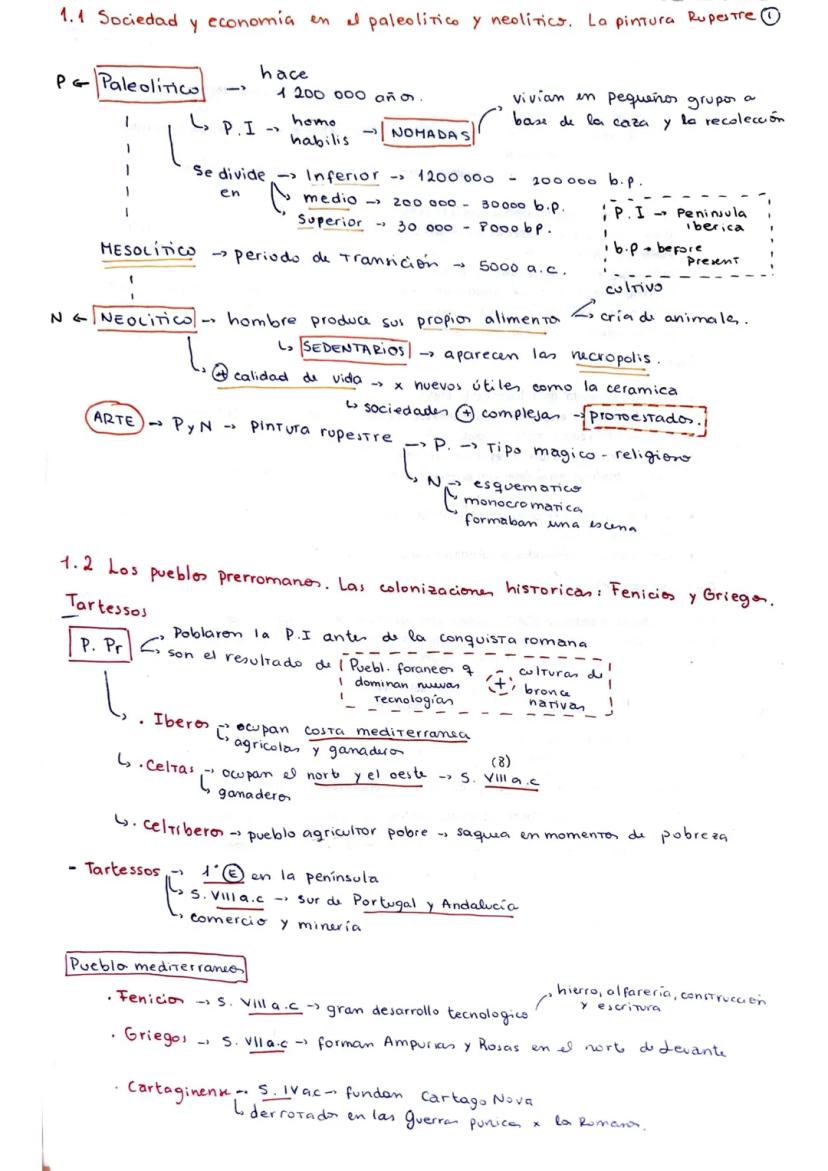 1.1 Sociedad y economía en el paleolítico y neolítico. La pintura Rupestre 1
P ← Paleolítico → hace 1 200 000 años.
↳ P.I → homo habilis → NOMADAS
vivían en pequeños grupos a
base de la caza y la recolección
Se divide en → Inferior → 1200 000 - 200 000 b.p.
medio → 200 000 - 30000 b.p.
Superior → 30 000 - 8000 bp.
P.I → Peninsula iberica
b.p → before present
MESOLÍTICO → periodo de transición → 5000 a.c.
N ← NEOLITICO → hombre produce sus propios alimento
cultivo
cría de animales.
↳ SEDENTARIOS → aparecen las necropolis.
↳ + calidad de vida → x nuevos útiles como la ceramica
↳ sociedades + complejas → protoestados.
ARTE → P y N → pintura rupestre → P. → Tipo magico - religioso
↳ N → esquematico
monocromatica
formaban una escena
1.2 Los pueblos prerromanos. Las colonizaciones historicas: Fenicios y Griegos.
Tartessos
P. Pr
Poblaron la P.I antes de la conquista romana
son el resultado de
Puebl. foraneos q
dominan nuevas
tecnologías
+
culturas de
bronce
nativas
↳ . Iberos → ocupan costa mediterranea
↳ agricolas y ganaderos
↳ . Celtas → ocupan el norte y el oeste → S. VIII a.c
(8)
↳ ganaderos
↳ . Celtiberos → pueblo agricultor pobre → saquea en momentos de pobreza
- Tartessos → 1° E en la península
↳ S. VIII a.c → sur de Portugal y Andalucía
↳ comercio y minería
Pueblos mediterraneos
. Fenicios → S. VIII a.c → gran desarrollo tecnologico
hierro, alfarería, construcción
y escritura
. Griegos → S. VII a.c → forman Ampurias y Rosas en el norte de Levante
. Cartaginense → S. IV ac → fundan Cartago Nova
↳ derrotados en las Guerras punicas x los Romanos.